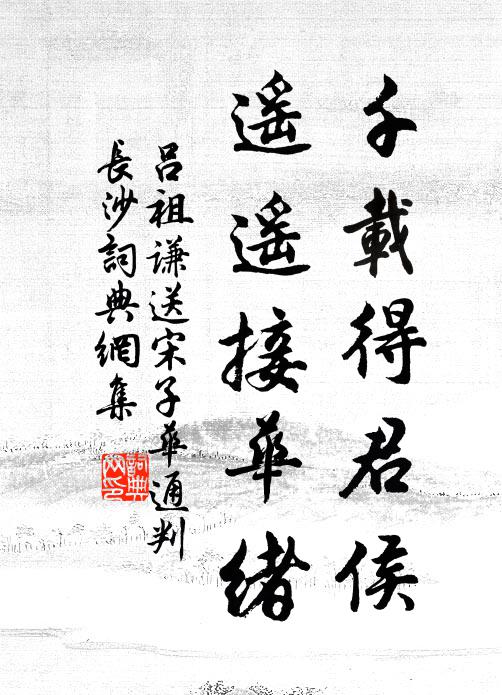 千載得君侯
遥遥接華緒
呂祖謙送宋子華通判
長沙詞典網集
詞典網印